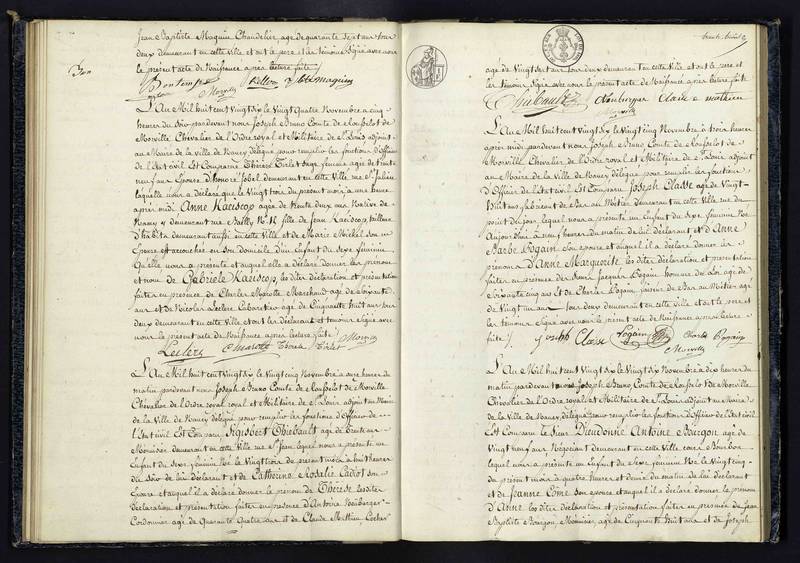 Jean Baptiste Maquin Chandelier agé de quarante Sept ans tous
deux demeurant en cette Ville et ont le pere et les temoins Signé avec nous
le présent acte de Naissance après lecture faite
Maquin
L'An Mil huit cent Vingt Six le Vingt Quatre Novembre a cinq
heures du Soir pardevant nous Joseph Bruno Comte de Rousselot de
Morville Chevalier de l'Ordre royal et Militaire de St Louis adjoint
au Maire de la Ville de Nancy délégué pour remplir les fonctions d'Officier
de l'Etat civil Est Comparue Thérèse Tirlet Sage femme agée de trente
neuf ans Epouse d'honoré Jobel demeurant en cette Ville rue St Julien
laquelle nous a déclaré que le Vingt trois du présent mois a une heure
après midi Anne Kaciscop agée de trente deux ans Native de
Nancy y demeurant rue Bailly No 11 fille de Jean Kaciscop
demeurant aussi en cette Ville et de Marie Michel son
Epouse est accouchée en Son domicile d'un Enfant du Sexe féminin
Qu'elle nous a présenté et auquel elle a déclaré donner les prenom
et nom de Gabriele Kaciscop, les dites déclaration et présentation
faites en presence de Charles Marotte Marchand agé de Soixante
ans et de Nicolas Leclerc Cabaretier agé de Cinquante huit ans tous
deux demeurant en cette Ville et ont les déclarant et temoins Signé avec
nous le présent acte de Naissance après lecture faite
Leclerc C Marotte Thérese Tirlet Morville
L'An Mil huit cent Vingt Six le Vingt cinq Novembre a onze heures du
matin pardevant nous Joseph Bruno Comte de Rousselot de Morville
Chevalier de l'Ordre royal royal et Militaire de St Louis adjoint au Maire
de la Ville de Nancy délégué pour remplir les fonctions d'Officier de
l'Etat civil Est Comparu Sigisbert Thiebault agé de trente ans
Menuisier demeurant en cette Ville rue St Jean lequel nous a présenté un
Enfant du Sexe féminin Né le Vingt trois du présent mois a huit heures
du Soir de lui déclarant et de Catherine Rosalie Cadot Son
Epouse et auquel il a déclaré donner le prenom de Thérèse les dites
déclaration et présentation faites en presence d'Antoine Neüberger
Cordonnier agé de Quarante Quatre ans et de Claude Mathieu Cocher
agé de Vingt Sept ans tous deux demeurant en cette Ville et ont le pere et
les temoins Signé avec nous le présent acte de Naissance après lecture faite
Thiebault Neuberger Claude Mathieu
L'An Mil huit cent Vingt Six le Vingt cinq Novembre a trois heures
après midi pardevant nous Joseph Bruno Comte de Rousselot de
Morville Chevalier de l'Ordre royal et Militaire de St Louis adjoint
au Maire de la Ville de Nancy délégué pour remplir les fonctions
d'Officier de l'Etat civil Est Comparu Joseph Classe agé de Vingt
huit ans fabricant de Bas au Métier demeurant en cette Ville rue du
point du jour, lequel nous a présenté un Enfant du Sexe féminin Né
Aujourd'hui a neuf heures du matin de lui déclarant et d'Anne
Barbe Pogain Son epouse et auquel il a déclaré donner les
prenoms d'Anne Marguerite les dites déclaration et présentation
faites en presence des Sieurs Jacques Pogain homme de Loi agé de
Soixante cinq ans Et de Charles Pogain faiseur de Bas au Métier agé
de Vingt un ans tous deux demeurant en cette Ville et ont le pere et
les temoins Signé avec nous le présent acte de Naissance après lecture
faite
Joseph Classe Pogain Charles Pogain
Morville
L'An Mil huit cent Vingt Six le Vingt cinq Novembre a dix heures du
matin pardevant nous Joseph Bruno Comte de Rousselot de Morville
Chevalier de l'Ordre royal et Militaire de St Louis adjoint au Maire
de la Ville de Nancy délégué pour remplir les fonctions d'Officier de l'Etat civil
Est Comparu le Sieur Dieudonné Antoine Bourgon agé de
Vingt Neuf ans Négociant demeurant en cette Ville cours Bourbon
lequel nous a présenté un Enfant du Sexe féminin Né le Vingt cinq
du présent mois a quatre heures et demie du matin de lui déclarant
et de Jeanne Côme Son epouse et auquel il a déclaré donner le prenom
d'Anne les dites déclaration et présentation faites en presence de Jean
Baptiste Bourgon, Menuisier agé de Cinquante huit ans et de Joseph